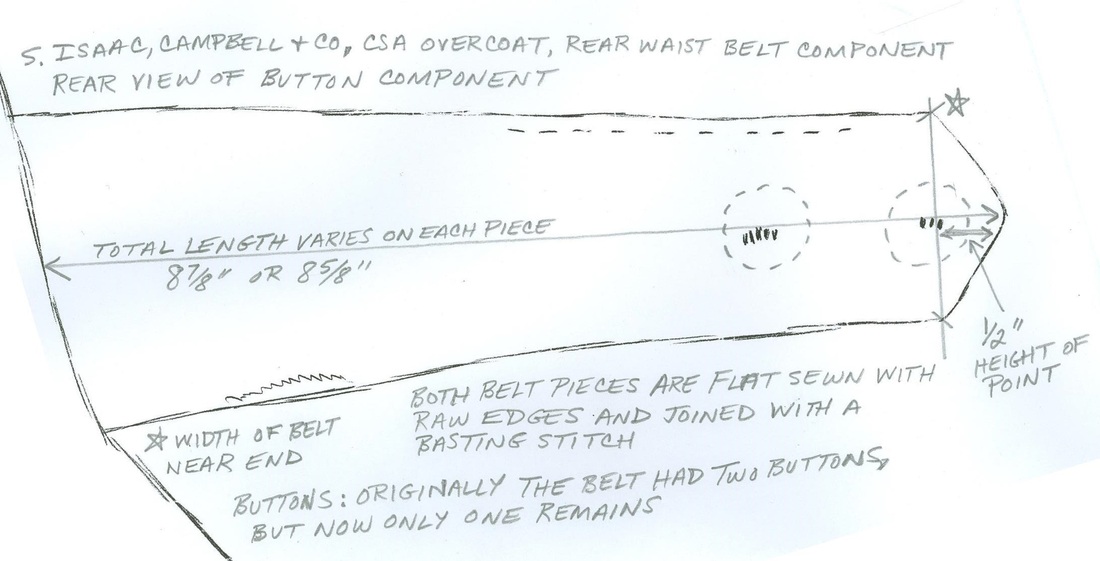 S. ISAAC, CAMPBELL + CO, CSA OVERCOAT, REAR WAIST BELT COMPONENT
REAR VIEW OF BUTTON COMPONENT
TOTAL LENGTH VARIES ON EACH PIECE
8 7/8" OR 8 5/8"
1/2"
HEIGHT OF
POINT
BOTH BELT PIECES ARE FLAT SEWN WITH
RAW EDGES AND JOINED WITH A
BASTING STITCH
☆ WIDTH OF BELT
NEAR END
BUTTONS: ORIGINALLY THE BELT HAD TWO BUTTONS,
BUT NOW ONLY ONE REMAINS